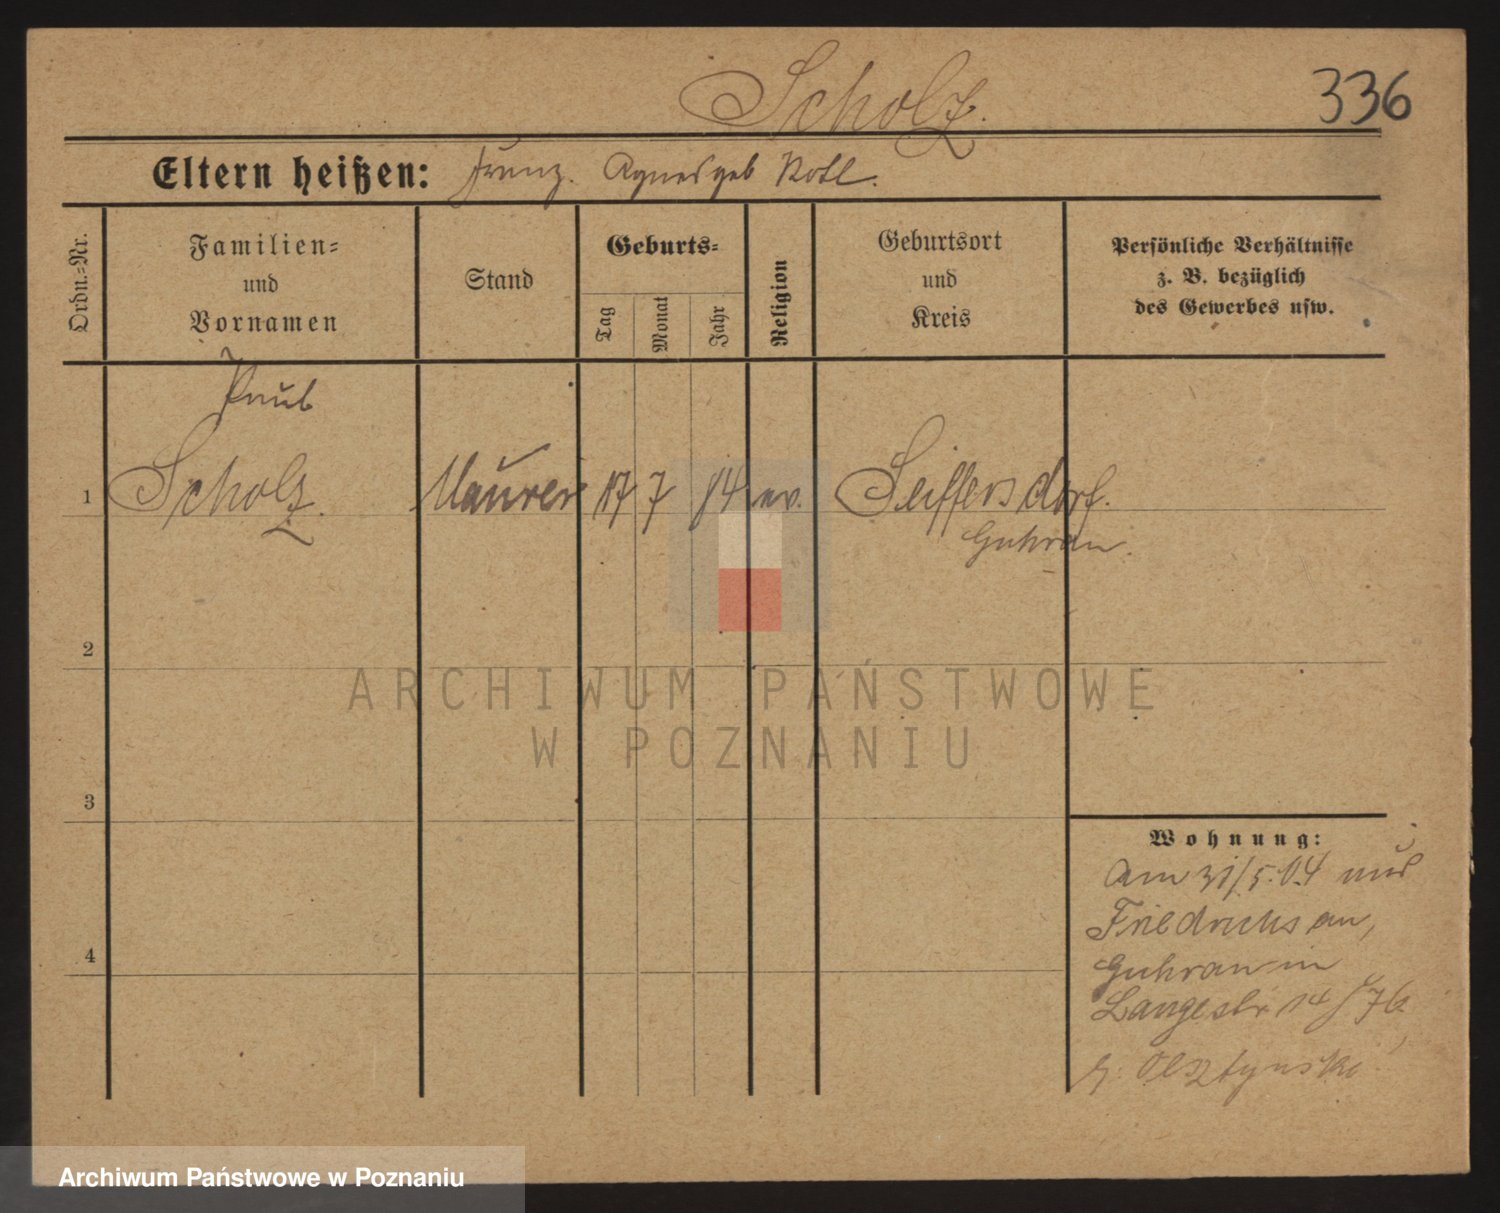 Scholz.
336
Eltern heißen: Franz. Agnes geb
Ordn.=Nr.
Familien=
und
Vornamen
Stand
Geburts=
Tag
Monat
Jahr
Religion
Geburtsort
und
Kreis
Persönliche Verhältnisse
z. B. bezüglich
des Gewerbes usw.
Paul
1 Scholz. Maurer 17 7 84 ev. Seiffersdorf.
Guhrau.
2
3
4
Wohnung:
Am 31/5.04 aus
Guhrau in
Langestr 14
Olsztynski
ARCHIWUM PAŃSTWOWE
W POZNANIU
Archiwum Państwowe w Poznaniu